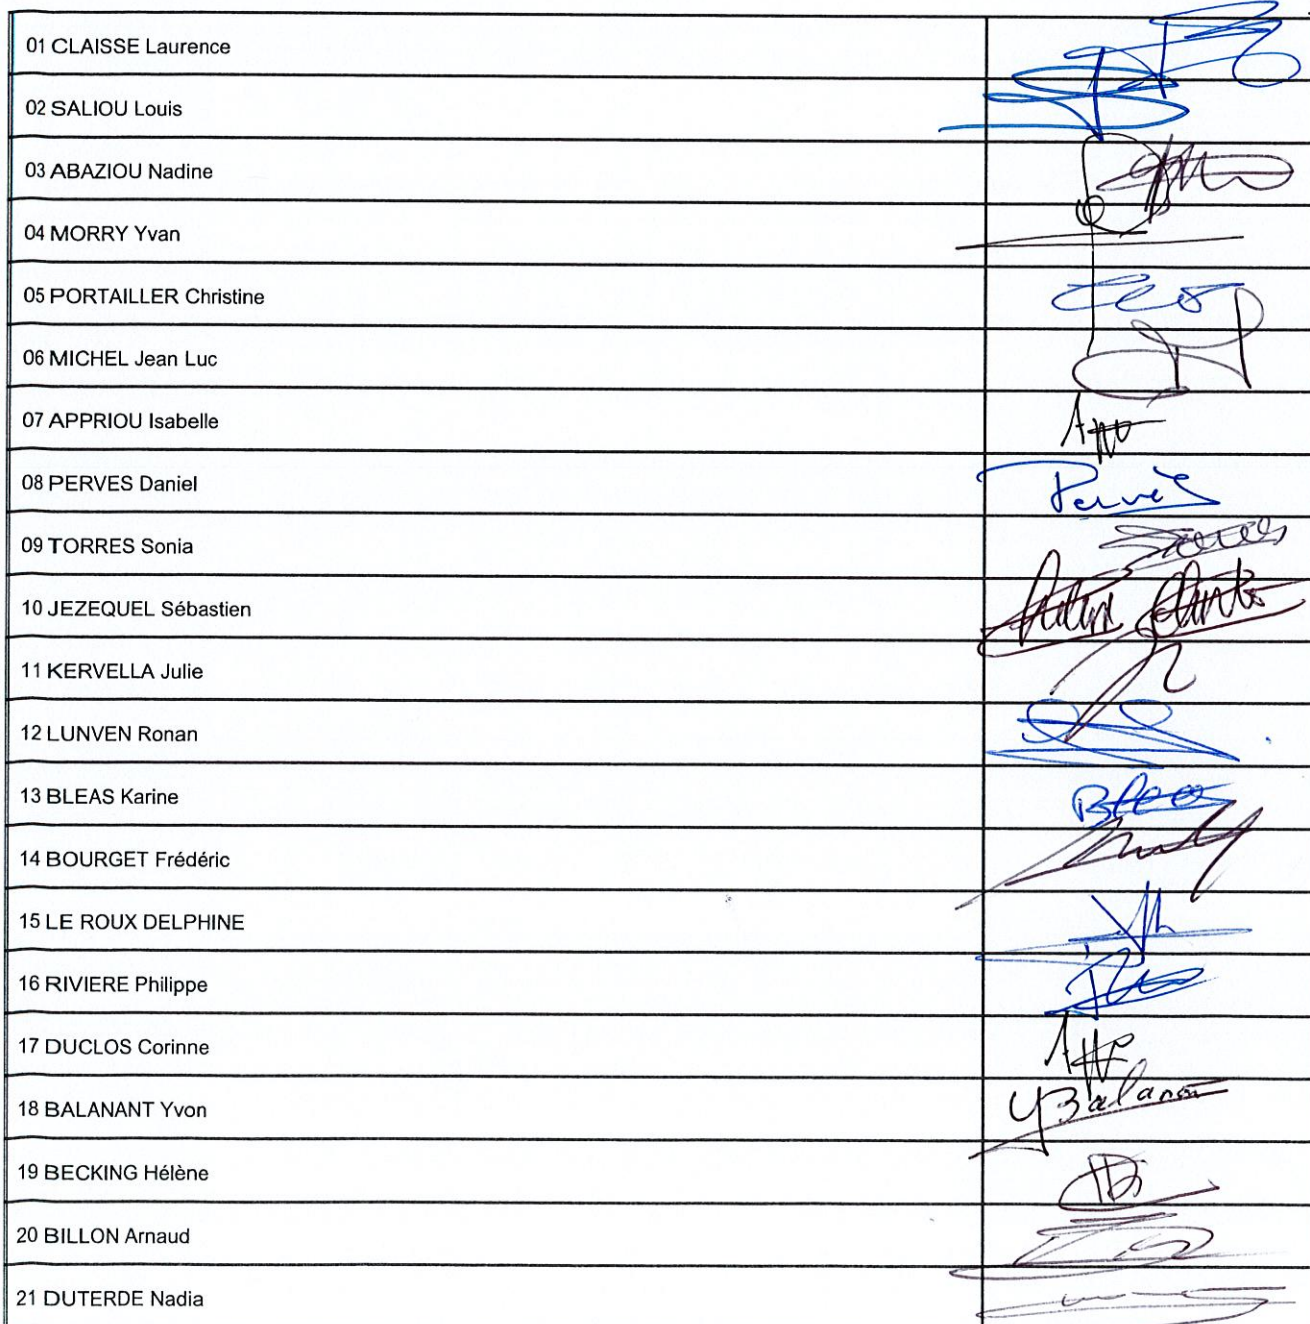 01 CLAISSE Laurence
02 SALIOU Louis
03 ABAZIOU Nadine
04 MORRY Yvan
05 PORTAILLER Christine
06 MICHEL Jean Luc
07 APPRIOU Isabelle
08 PERVES Daniel
Pervès
09 TORRES Sonia
10 JEZEQUEL Sébastien
11 KERVELLA Julie
12 LUNVEN Ronan
13 BLEAS Karine
Bleas
14 BOURGET Frédéric
15 LE ROUX DELPHINE
16 RIVIERE Philippe
17 DUCLOS Corinne
18 BALANANT Yvon
YBalanant
19 BECKING Hélène
20 BILLON Arnaud
21 DUTERDE Nadia